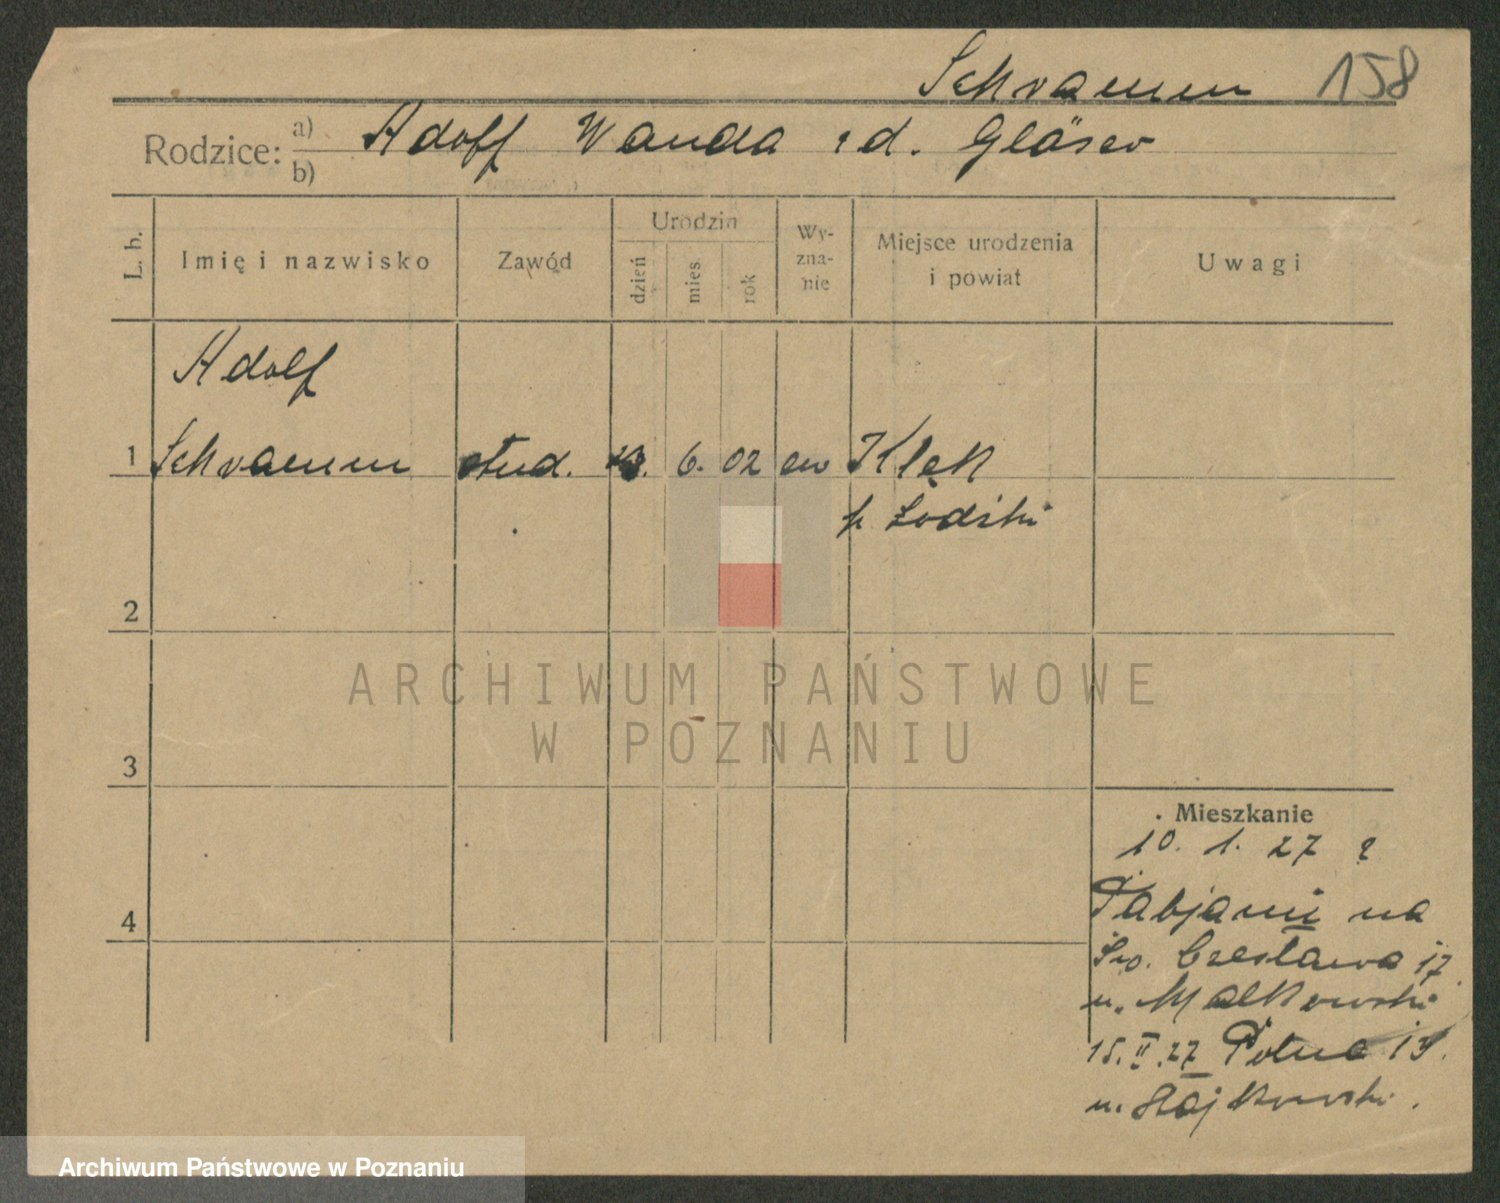 Schramm 158
Rodzice: a) Adolf Wanda zd. Gläser
b)
L. b. Imię i nazwisko Zawód Urodzin dzień mies. rok Wyznanie Miejsce urodzenia i powiat Uwagi
Adolf
1 Schramm stud. 6. 02 ew Klęk
p. Łodzki
2
ARCHIWUM PAŃSTWOWE
W POZNANIU
3
Mieszkanie
10. 1. 27 z
4
Pabjanic na
Św. Czesława 17
u. Małkowski
15. II. 27 Polna
u.
Archiwum Państwowe w Poznaniu